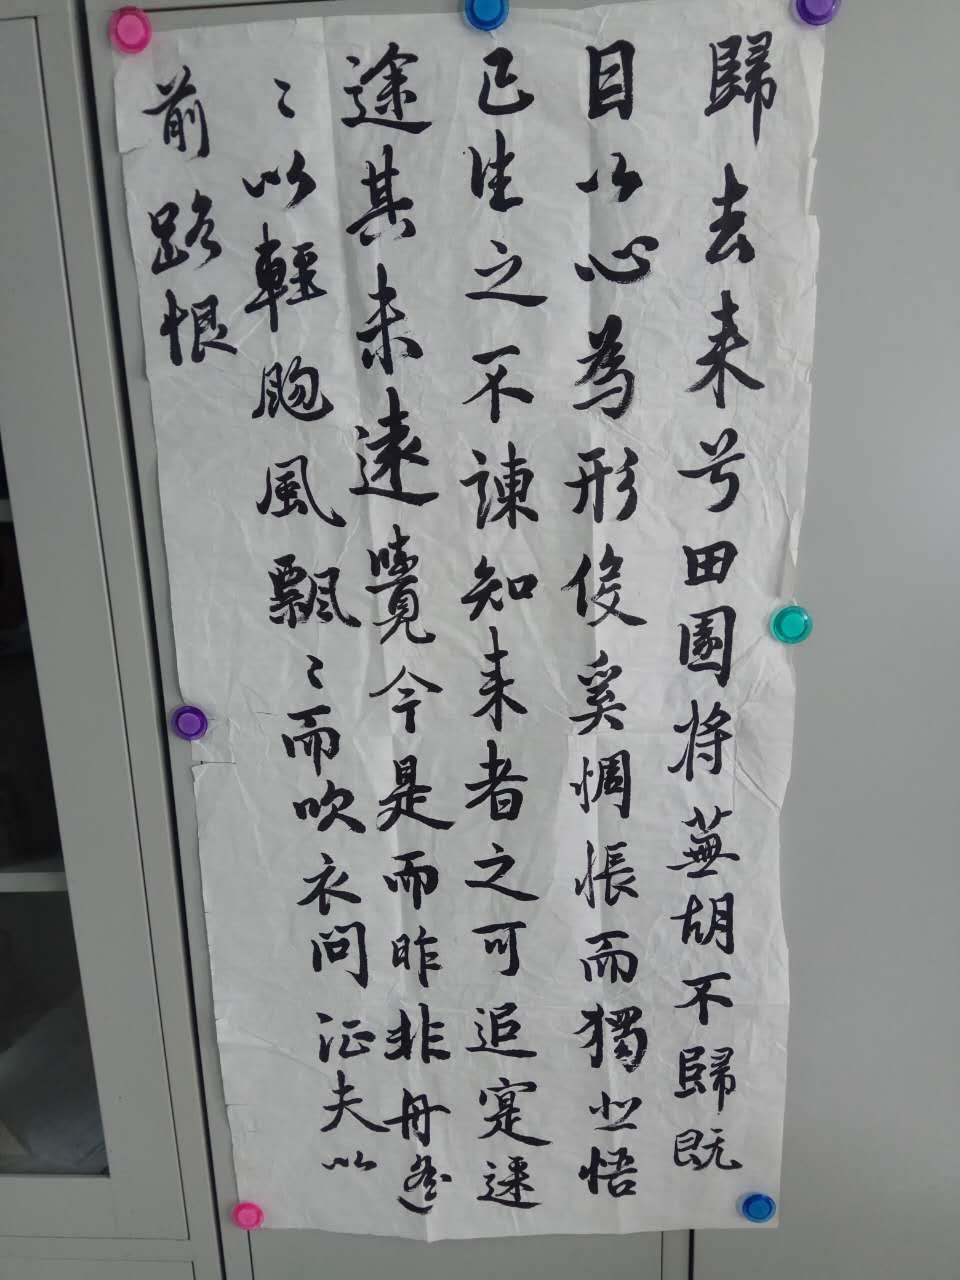 歸去来兮田園将蕪胡不歸既
目以心為形役奚惆悵而獨悲悟
已往之不諫知来者之可追寔迷
途其未遠覺今是而昨非舟遥
〻以輕颺風飄〻而吹衣問征夫以
前路恨